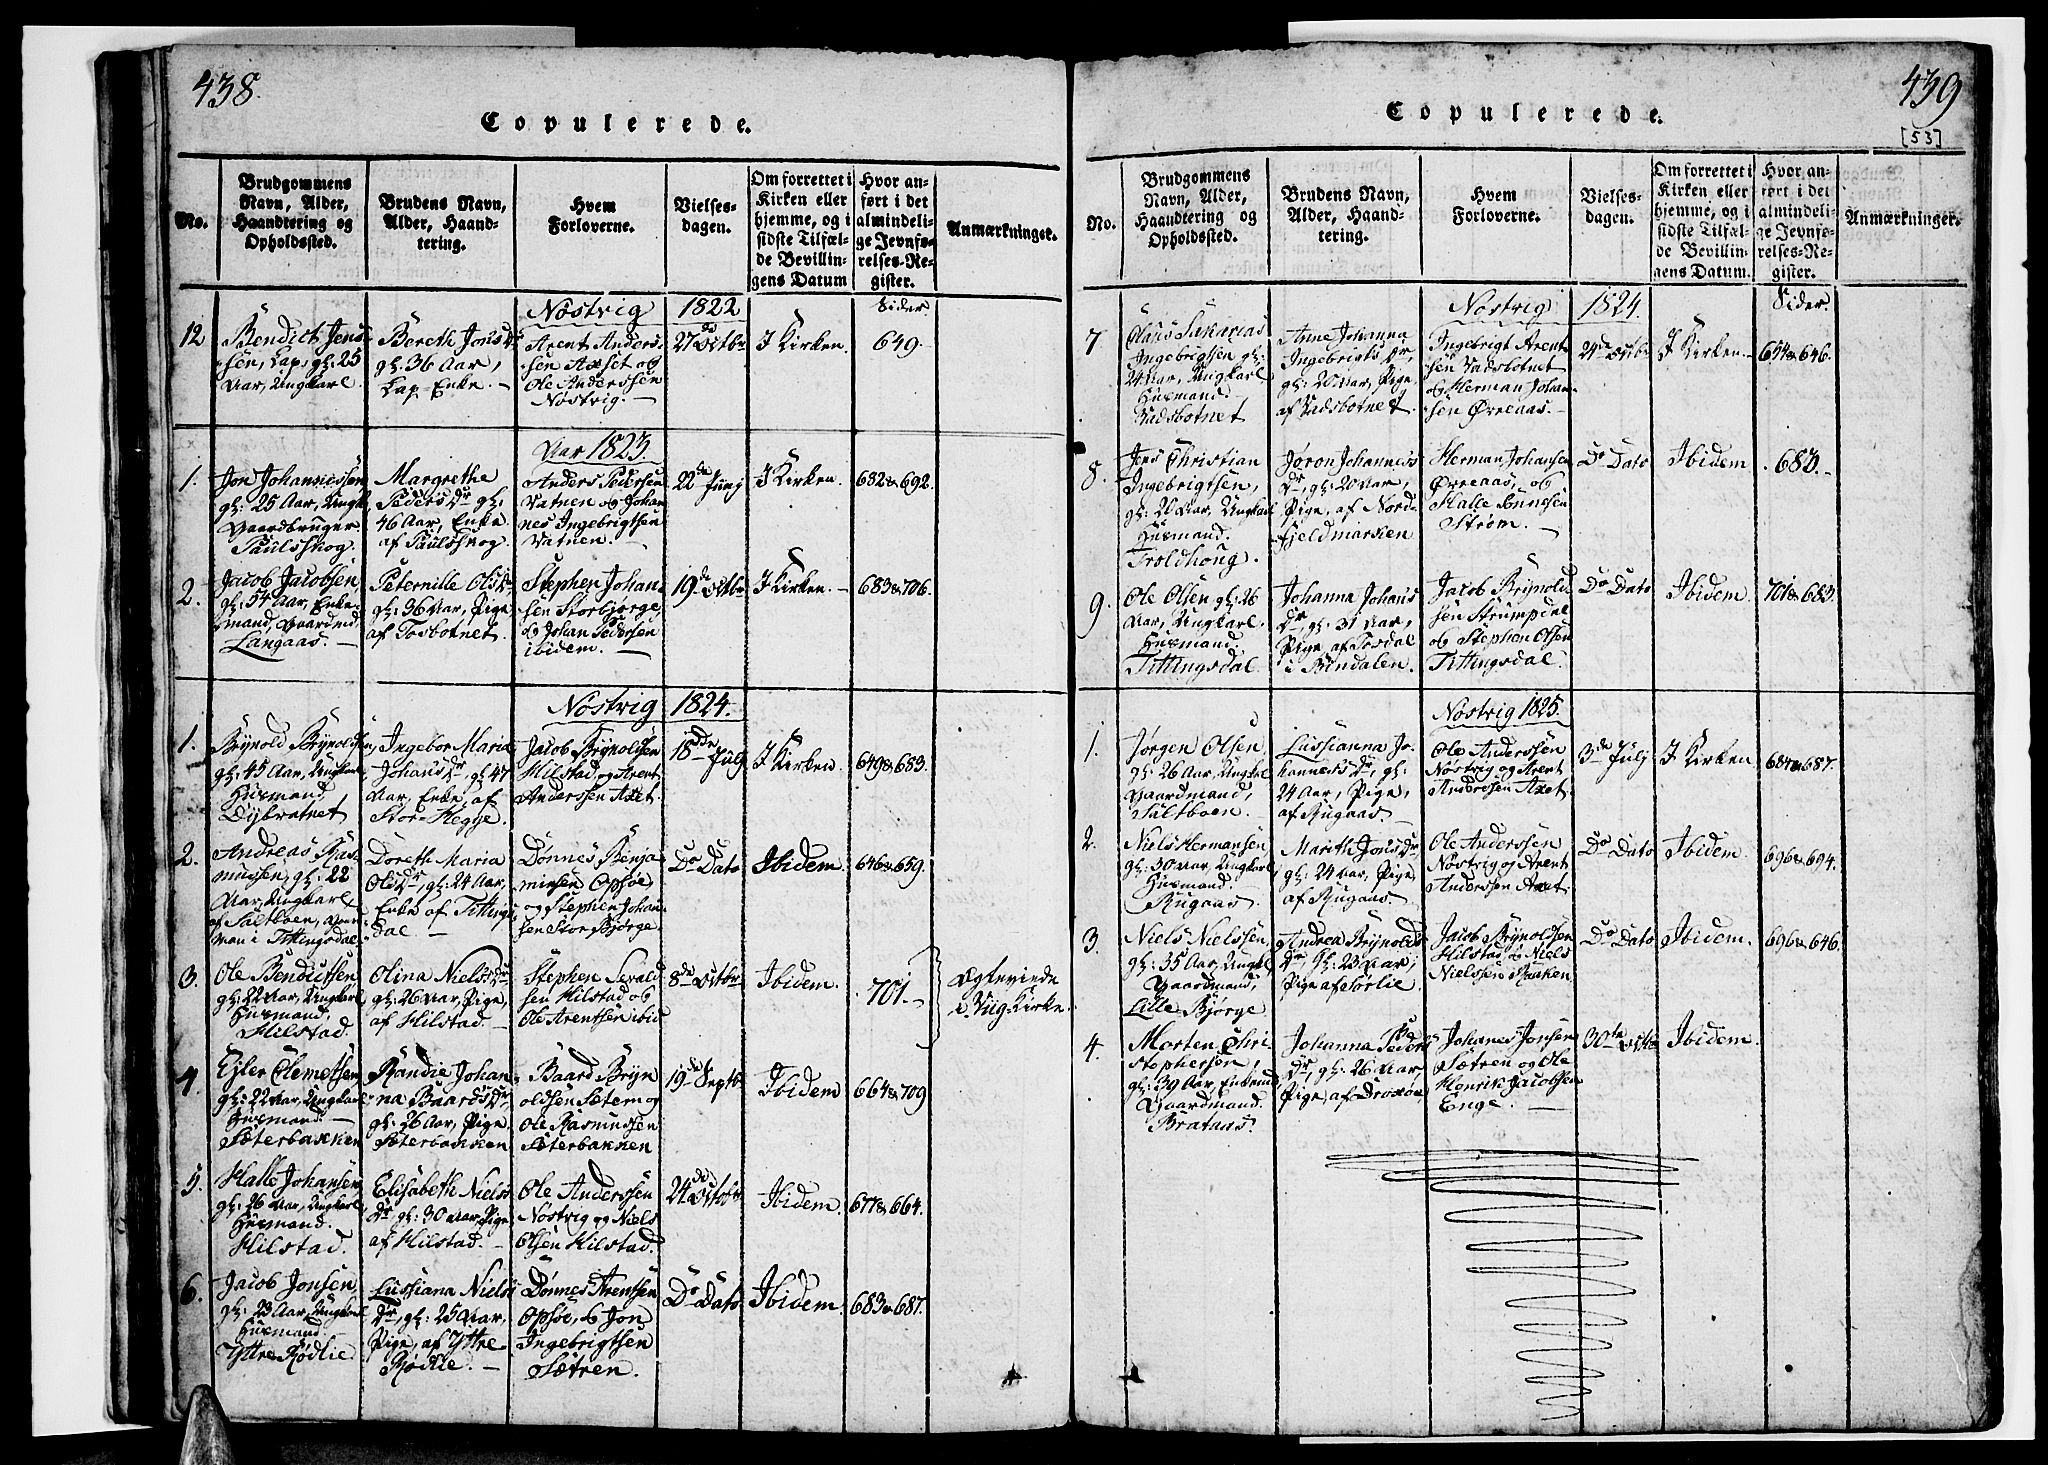 438.
Copulerede.
No.
Brudgommens Navn, Alder, Haandtering og Opholdssted.
Brudens Navn, Alder, Haandtering.
Hvem Forloverne.
Vielsesdagen.
Om forrettet i Kirken eller hjemme, og i sidste Tilfælde Bevillingens Datum
Hvor anført i det almindelige Jevnførelses-Register.
Anmærkninger.
Nöstvig 1822
Sider.
12
Bendict Jens-
sen, Lap, gl: 25
Aar, Ungkarl.
Bereth Jons Dr
gl: 36 Aar,
Lap-Enke. —
Arent Anders-
sen Axset og
Ole Anderssen
Nöstvig. —
27de Octbr
I Kirken.
649.
Aar 1823.
1.
Jon Johannessen
gl: 25 Aar, Ungk.
Gaardbruger
Paulsskog.
Margrethe
Peders Dr gl:
46 Aar, Enke
af Paulsskog.
Anders Pedersen
Vatnen og Johan-
nes Ingebrigtsen
Vatnen. —
22de Junj
I Kirken.
682 & 692.
2.
Jacob Jacobsen,
gl: 54 Aar, Enke-
mand, Gaardmd,
Langaas. —
Peternille Ols Dr
gl: 36 Aar, Pige
af Tosbotnet.
Stephen Johan-
sen Storbjorge,
og Johan Pedersen
ibidem. —
19de Octbr
I Kirken. —
683 & 706.
Nöstvig 1824.
1.
Brynold Brynoldsen,
gl: 45 Aar, Ungkarl
Husmand,
Dybvatnet
Ingebor Maria
Johans Dr, gl 47
Aar, Enke af
Stor-Hegge.
Jacob Brynoldsen
Hilstad, og Arent
Anderssen Axet.
18de July
I Kirken.
649 & 683.
2.
Andreas Ras-
mussen, gl: 22
Aar, Ungkarl
af Saltboen, Gaar-
man i Tittingsdal.
Doreth Maria
Ols Dr, gl: 24 Aar,
Enke af Tittings-
dal —
Dønnes Benja-
minsen Opsøe,
og Stephen Johan-
sen Stor Bjørge.
Do Dato
Ibidem.
646 & 659.
3.
Ole Bendictsen
gl: 22 Aar, Ungkarl
Husmand,
Hilstad.
Olina Niels Dr
gl: 26 Aar, Pige,
af Hilstad. —
Stephen Sevald-
sen Hilstad og
Ole Arentsen ibid
8de Octbr
Ibidem.
701. —
Ægteviede
i Viig Kirke.
4.
Ejler Clemetsen
gl: 22 Aar, Ungkarl
Husmand. —
Sæterbakken
Randie Johan-
na Baards Dr,
gl: 26 Aar, Pige.
Sæterbakken
Baard Bryn-
oldsen Sætern og
Ole Rasmussen
Sæterbakken
19de Septb.
Ibidem
664 & 709
5.
Halle Johansen
gl: 26 Aar, Ungkarl
Husmand.
Hilstad.
Elisabeth Niels
Dr gl: 30 Aar, Pige
af Hilstad. —
Ole Anderssen
Nöstvig og Niels
Olsen Hilstad.
24de Octobr
Ibidem.
677 & 664.
6.
Jacob Jonsen,
gl: 23 Aar, Ungkarl
Husmand
Yttre Rødlie
Lussiana Niels
Dr, gl: 25 Aar,
Pige, af Yttre
Rødlie. —
Dønnes Arentsen
Opsøe, & Jon
Ingebrigtsen
Sætren.
Do Dato
Ibidem.
683 & 687.
439
[53]
Copulerede.
No.
Brudgommens Navn, Alder, Haandtering og Opholdssted.
Brudens Navn, Alder, Haandtering.
Hvem Forloverne.
Vielsesdagen.
Om forrettet i Kirken eller hjemme, og i sidste Tilfælde Bevillingens Datum.
Hvor anført i det almindelige Jevnførelses-Register.
Anmærkninger.
Nöstvig 1824.
Sider.
7
Claus Sakarias
Ingebrigtsen gl:
24 Aar, Ungkarl
Husmand. —
Vadsbotnet
Anne Johanna
Ingebrigts Dr,
gl: 20 Aar, Pige
af Vadsbotnet.
Ingebrigt Arent-
sen Vadsbotnet
og Herman Johan-
sen Ørreaas. —
24de Octb.
I Kirken. —
654 & 646.
8.
Jens Christian
Ingebrigtsen,
gl: 20 Aar, Ungkarl
Husmand.
Troldhoug.
Jøron Johannes
Dr, gl: 20 Aar,
Pige, af Nord-
fjeldmarken
Herman Johansen
Ørreaas, og
Halle Tønnesen
Strøm. —
Do Dato
Ibidem
683. —
9.
Ole Olsen gl: 26
Aar, Ungkarl.
Husmand.
Tittingsdal
Johanna Johans
Dr, gl: 31 Aar,
Pige af Tosdal
i Bindalen.
Jacob Brynold-
sen Strumpdal
og Stephen Olsen
Tittingsdal.
Do Dato
Ibidem.
701 & 683.
Nöstvig 1825.
1.
Jørgen Olsen
gl: 26 Aar, Ungkarl
Gaardmand,
Saltboen.
Lussianna Jo-
hannes Dr, gl:
24 Aar, Pige,
af Rugaas —
Ole Anderssen
Nöstvig og Arent
Anderssen Axet.
3de Julj
I Kirken
684 & 687.
2.
Niels Hermansen
gl: 30 Aar, Ungkarl
Husmand.
Rugaas
Mareth Jons Dr
gl: 24 Aar, Pige
af Rugaas. —
Ole Anderssen
Nöstvig og Arent
Anderssen Axet.
Do Dato
Ibidem.
696 & 694.
3.
Niels Nielssen
gl: 35 Aar, Ungkarl
Gaardmand,
Lille Bjørge
Andrea Brynolds
Dr, gl: 23 Aar;
Pige af Sørlie.
Jacob Brynoldsen
Hilstad & Niels
Nielssen Raaken.
Do Dato
Ibidem.
696 & 646.
4.
Morten Chri-
stophersen,
gl: 39 Aar, Enkemd
Gaardmand.
Brataas.
Johanna Peders
Dr, gl: 26 Aar
Pige, af Droxøe
Johanes Jonsen
Sætren og Ole
Henrik Jacobsen
Enge. —
30te Octb
Ibidem.